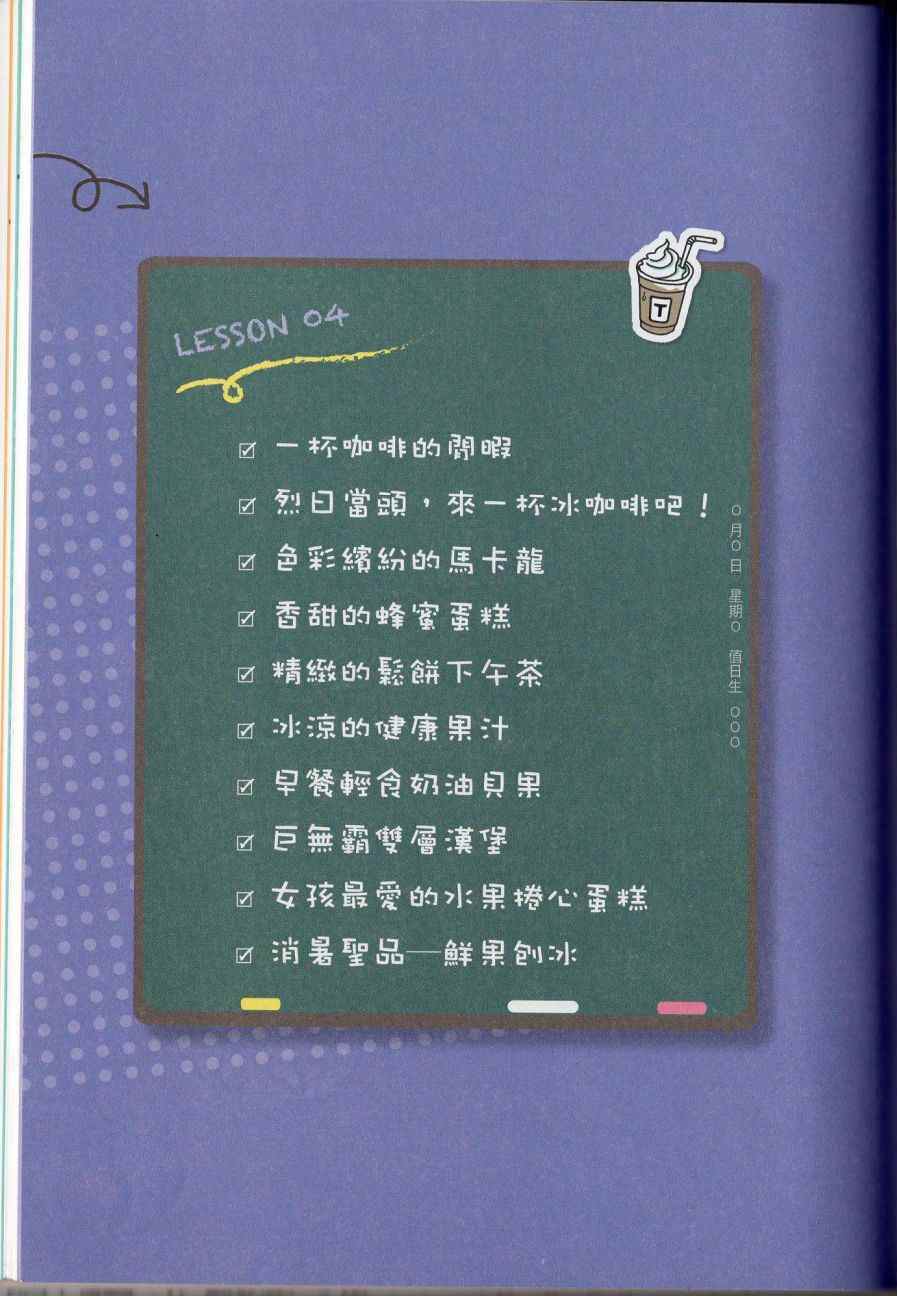 LESSON 04
T
☑ 一杯咖啡的閒暇
☑ 烈日當頭，來一杯冰咖啡吧！
☑ 色彩繽紛的馬卡龍
☑ 香甜的蜂蜜蛋糕
☑ 精緻的鬆餅下午茶
☑ 冰涼的健康果汁
☑ 早餐輕食奶油貝果
☑ 巨無霸雙層漢堡
☑ 女孩最愛的水果捲心蛋糕
☑ 消暑聖品─鮮果刨冰
○月○日 星期○ 值日生 ○○○